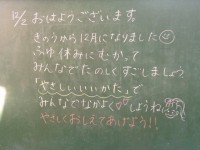 12/2 おはようございます。
きのうから12月になりました
ふゆ休みにむかって
みんなでたのしくすごしましょう。
「やさしいいいかた」で
みんなでなかよくしようね。
やさしくおしえてあげよう!!